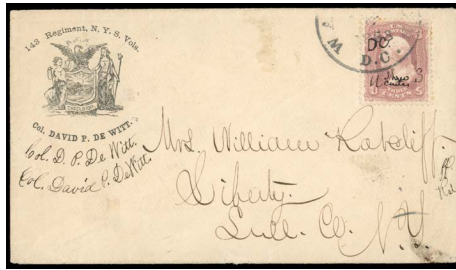 143 Regiment, N. Y. S. Vols.
EXCELSIOR
Col. DAVID P. DE WITT.
Col. D. P. De Witt.
Col. David P. DeWitt.
D.C.
D.C.
3
CENTS
Mrs. William Ratcliff.
Liberty.
Sull. Co. N.Y.